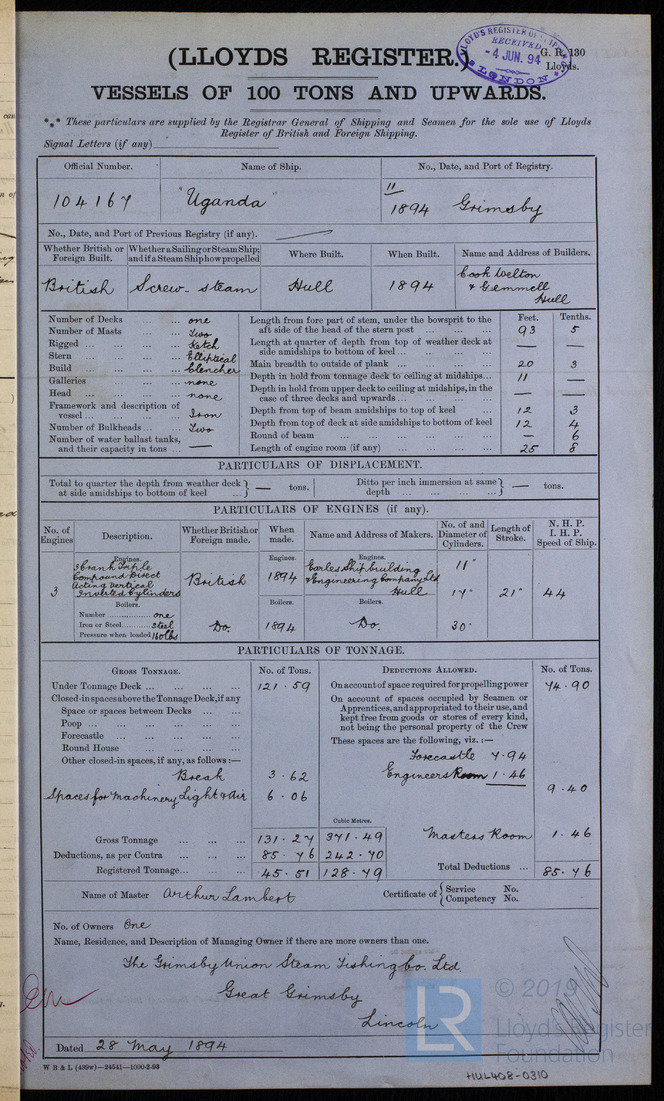 (LLOYDS REGISTER.)
LLOYD'S REGISTER OF SHIPPING
RECEIVED
-4 JUN. 94
LONDON
G. R. 130
Lloyds.
VESSELS OF 100 TONS AND UPWARDS.
*** These particulars are supplied by the Registrar General of Shipping and Seamen for the sole use of Lloyds
Register of British and Foreign Shipping.
Signal Letters (if any)
Official Number. Name of Ship. No., Date, and Port of Registry.
104167 "Uganda" 11/1894 Grimsby
No., Date, and Port of Previous Registry (if any).
Whether British or Foreign Built. Whether a Sailing or Steam Ship; and if a Steam Ship how propelled Where Built. When Built. Name and Address of Builders.
British Screw-steam Hull 1894 Cook Welton & Gemmell Hull
Feet. Tenths.
Number of Decks ... one
Number of Masts ... Two
Rigged ... Ketch
Stern ... Elliptical
Build ... Clencher
Galleries ... none
Head ... none
Framework and description of vessel ... Iron
Number of Bulkheads ... Two
Number of water ballast tanks, and their capacity in tons ... —
Length from fore part of stem, under the bowsprit to the aft side of the head of the stern post ... 93 5
Length at quarter of depth from top of weather deck at side amidships to bottom of keel ... — —
Main breadth to outside of plank ... 20 3
Depth in hold from tonnage deck to ceiling at midships ... 11 —
Depth in hold from upper deck to ceiling at midships, in the case of three decks and upwards ... — —
Depth from top of beam amidships to top of keel ... 12 3
Depth from top of deck at side amidships to bottom of keel 12 4
Round of beam ... — 6
Length of engine room (if any) ... 25 8
PARTICULARS OF DISPLACEMENT.
Total to quarter the depth from weather deck at side amidships to bottom of keel ... — tons. Ditto per inch immersion at same depth ... — tons.
PARTICULARS OF ENGINES (if any).
No. of Engines Description. Whether British or Foreign made. When made. Name and Address of Makers. No. of and Diameter of Cylinders. Length of Stroke. N. H. P. I. H. P. Speed of Ship.
Engines. Engines. Engines.
3 3 Crank Triple Compound Direct Acting Vertical Inverted Cylinders British 1894 Earles Shipbuilding & Engineering Company Ltd Hull 11" 17" 30" 21" 44
Boilers. Boilers. Boilers.
Number ... one
Iron or Steel ... Steel Do. 1894 Do.
Pressure when loaded 160 lbs
PARTICULARS OF TONNAGE.
GROSS TONNAGE. No. of Tons. DEDUCTIONS ALLOWED. No. of Tons.
Under Tonnage Deck ... 121.59
Closed-in spaces above the Tonnage Deck, if any
Space or spaces between Decks ...
Poop ...
Forecastle ...
Round House ...
Other closed-in spaces, if any, as follows:—
Break 3.62
Spaces for Machinery Light & Air 6.06
On account of space required for propelling power 74.90
On account of spaces occupied by Seamen or Apprentices, and appropriated to their use, and kept free from goods or stores of every kind, not being the personal property of the Crew
These spaces are the following, viz.:—
Forecastle 7.94
Engineers Room 1.46
9.40
Cubic Metres.
Gross Tonnage ... 131.27 371.49
Masters Room 1.46
Deductions, as per Contra ... 85.76 242.70
Registered Tonnage ... 45.51 128.79
Total Deductions ... 85.76
Name of Master Arthur Lambert Certificate of Service No. Competency No.
No. of Owners One
Name, Residence, and Description of Managing Owner if there are more owners than one.
The Grimsby Union Steam Fishing Co. Ltd
Great Grimsby
Lincoln
Dated 28 May 1894
W B & L (439w)—24541—1000-2-93
LR
© 2019
Lloyd's Register
Foundation
HUL408-0310